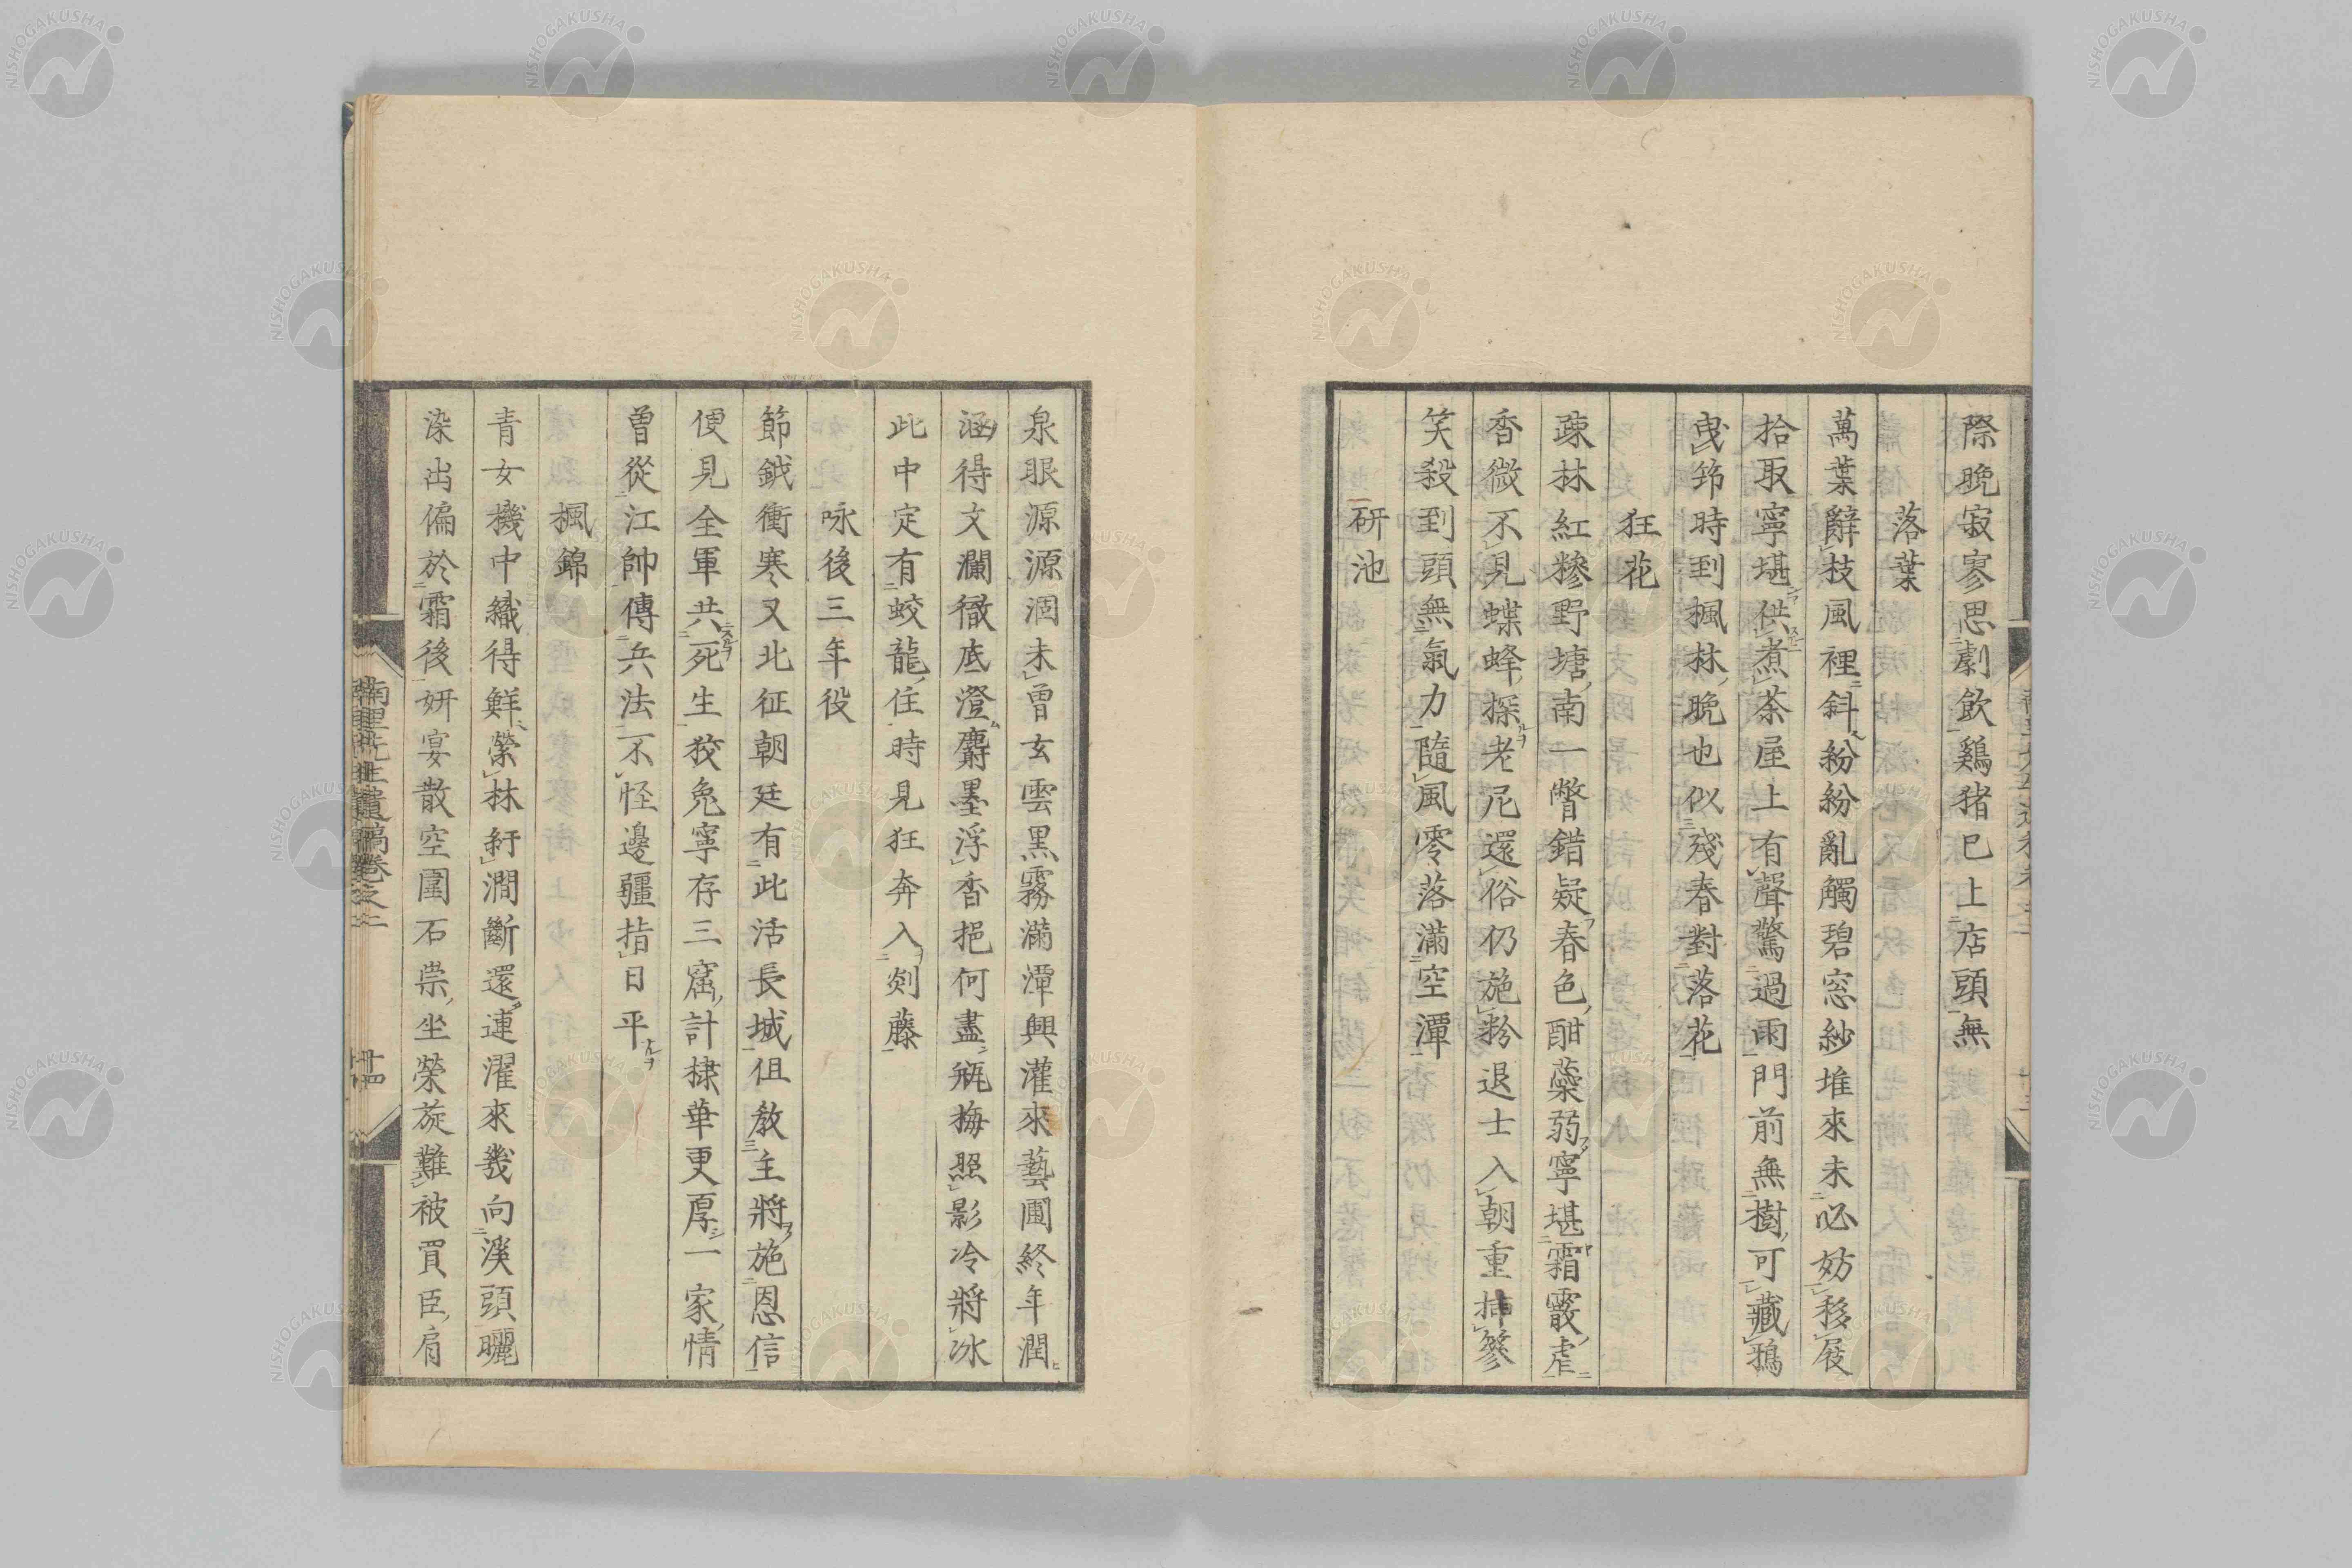 際晩寂寥思劇飲鷄猪巳上店頭無
落葉
萬葉辭枝風裡斜紛紛亂觸碧窓紗堆來未必妨移屐
拾取寧堪供煮茶屋上有聲驚過雨門前無樹可藏鴉
曳筇時到楓林晩也似殘春對落花
狂花
疎林紅糝野塘南一瞥錯疑春色酣蘂弱寧堪霜霰虐
香微不見蝶蜂探老尼還俗仍施粉退士入朝重挿簪
笑殺到頭無氣力隨風零落滿空潭
研池
泉眼源源涸未曽玄雲黒霧滿潭興灌來藝圃終年潤
涵得文瀾徹底澄麝墨浮香挹何盡瓶梅照影冷將冰
此中定有蛟龍住時見狂奔入剡藤
咏後三年役
節鉞衝寒又北征朝廷有此活長城但敎主將施恩信
便見全軍共死生狡兔寧存三窟計棣華更厚一家情
曽從江帥傳兵法不怪邊疆指日平
楓錦
青女機中織得鮮縈林紆澗斷還連濯來幾向溪頭曬
染出偏於霜後妍宴散空圍石崇坐榮旋難被買臣肩
南里先生遺稿卷之二
十四